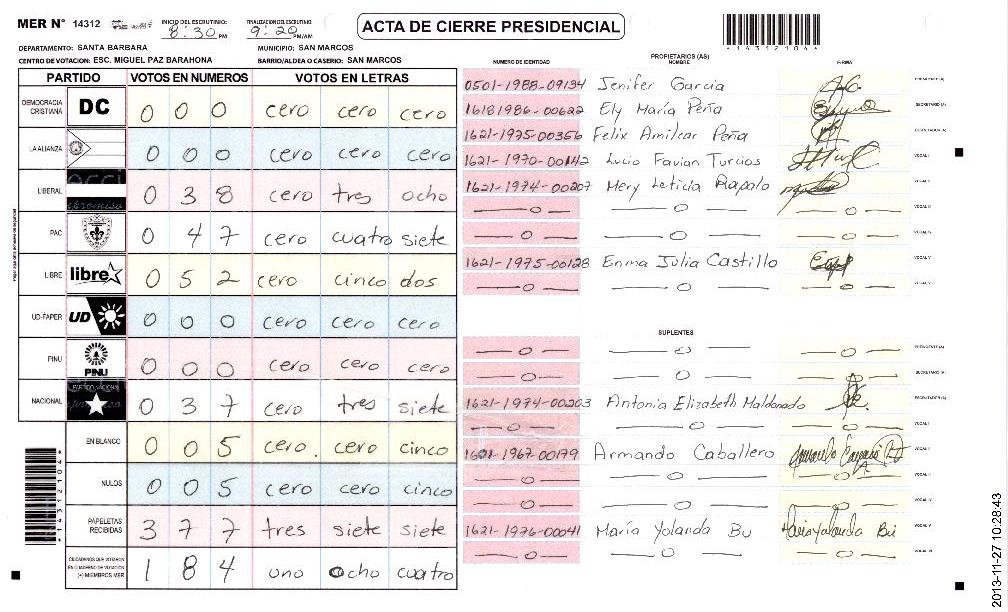 MER N° 14312
INICIO DEL ESCRUTINIO
8:30 PM
FINALIZACION DEL ESCRUTINIO
9:20 PM/AM
ACTA DE CIERRE PRESIDENCIAL
DEPARTAMENTO: SANTA BARBARA
MUNICIPIO: SAN MARCOS
CENTRO DE VOTACION: ESC. MIGUEL PAZ BARAHONA
BARRIO/ALDEA O CASERIO: SAN MARCOS
PARTIDO VOTOS EN NUMEROS VOTOS EN LETRAS
DEMOCRACIA CRISTIANA DC 0 0 0 cero cero cero
LA ALIANZA 0 0 0 cero cero cero
LIBERAL 0 3 8 cero tres ocho
PAC 0 4 7 cero cuatro siete
LIBRE libre 0 5 2 cero cinco dos
UD-FAPER UD 0 0 0 cero cero cero
PINU PINU 0 0 0 cero cero cero
NACIONAL PARTIDO NACIONAL 0 3 7 cero tres siete
EN BLANCO 0 0 5 cero cero cinco
NULOS 0 0 5 cero cero cinco
PAPELETAS RECIBIDAS 3 7 7 tres siete siete
CIUDADANOS QUE VOTARON EN CUADERNO DE VOTACION (+) MIEMBROS MER 1 8 4 uno ocho cuatro
PROPIETARIOS (AS)
NUMERO DE IDENTIDAD NOMBRE FIRMA
0501-1988-09134 Jenifer Garcia PRESIDENTE (A)
1618 1986-00622 Ely María Peña SECRETARIO (A)
1621-1975-00356 Felix Amilcar Peña ESCRUTADOR (A)
1621-1970-00142 Lucio Favian Turcios VOCAL I
1621-1974-00207 Mery Leticia Rapalo VOCAL II
— 0 — — 0 — — 0 — VOCAL III
— 0 — — 0 — — 0 — VOCAL IV
1621-1975-00128 Enma Julia Castillo VOCAL V
— 0 — — 0 — — 0 — VOCAL VI
SUPLENTES
— 0 — — 0 — — 0 — PRESIDENTE (A)
— 0 — — 0 — SECRETARIO (A)
1621-1974-00203 Antonia Elizabeth Maldonado ESCRUTADOR (A)
— 0 — — 0 — — 0 — VOCAL I
1621-1967-00179 Armando Caballero VOCAL II
— 0 — — 0 — — 0 — VOCAL III
— 0 — — 0 — — 0 — VOCAL IV
1621-1976-00041 María Yolanda Bu María Yolanda Bú VOCAL V
— 0 — — 0 — — 0 — VOCAL VI
14312104
2013-11-27 10:28:43